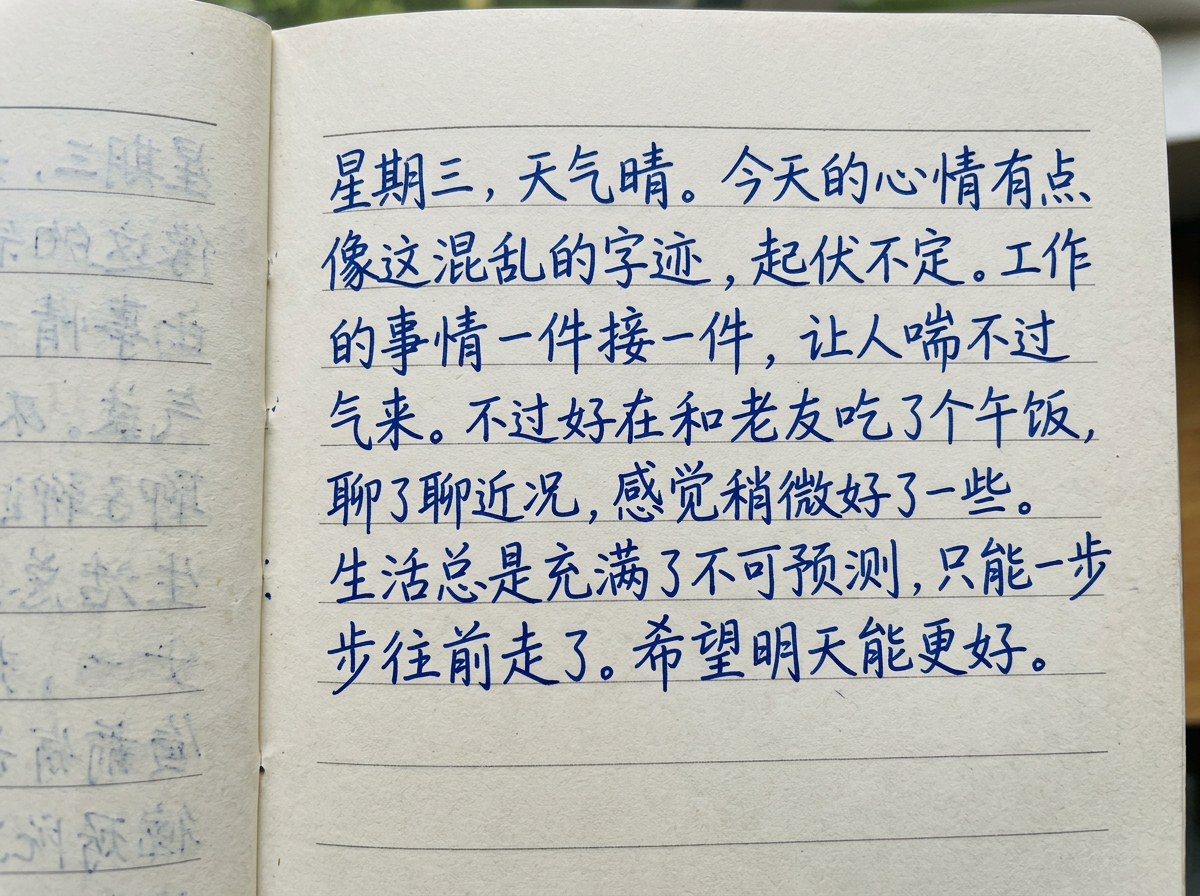 星期三，天气晴。今天的心情有点
像这混乱的字迹，起伏不定。工作
的事情一件接一件，让人喘不过
气来。不过好在和老友吃了个午饭，
聊了聊近况，感觉稍微好了一些。
生活总是充满了不可预测，只能一步
步往前走了。希望明天能更好。